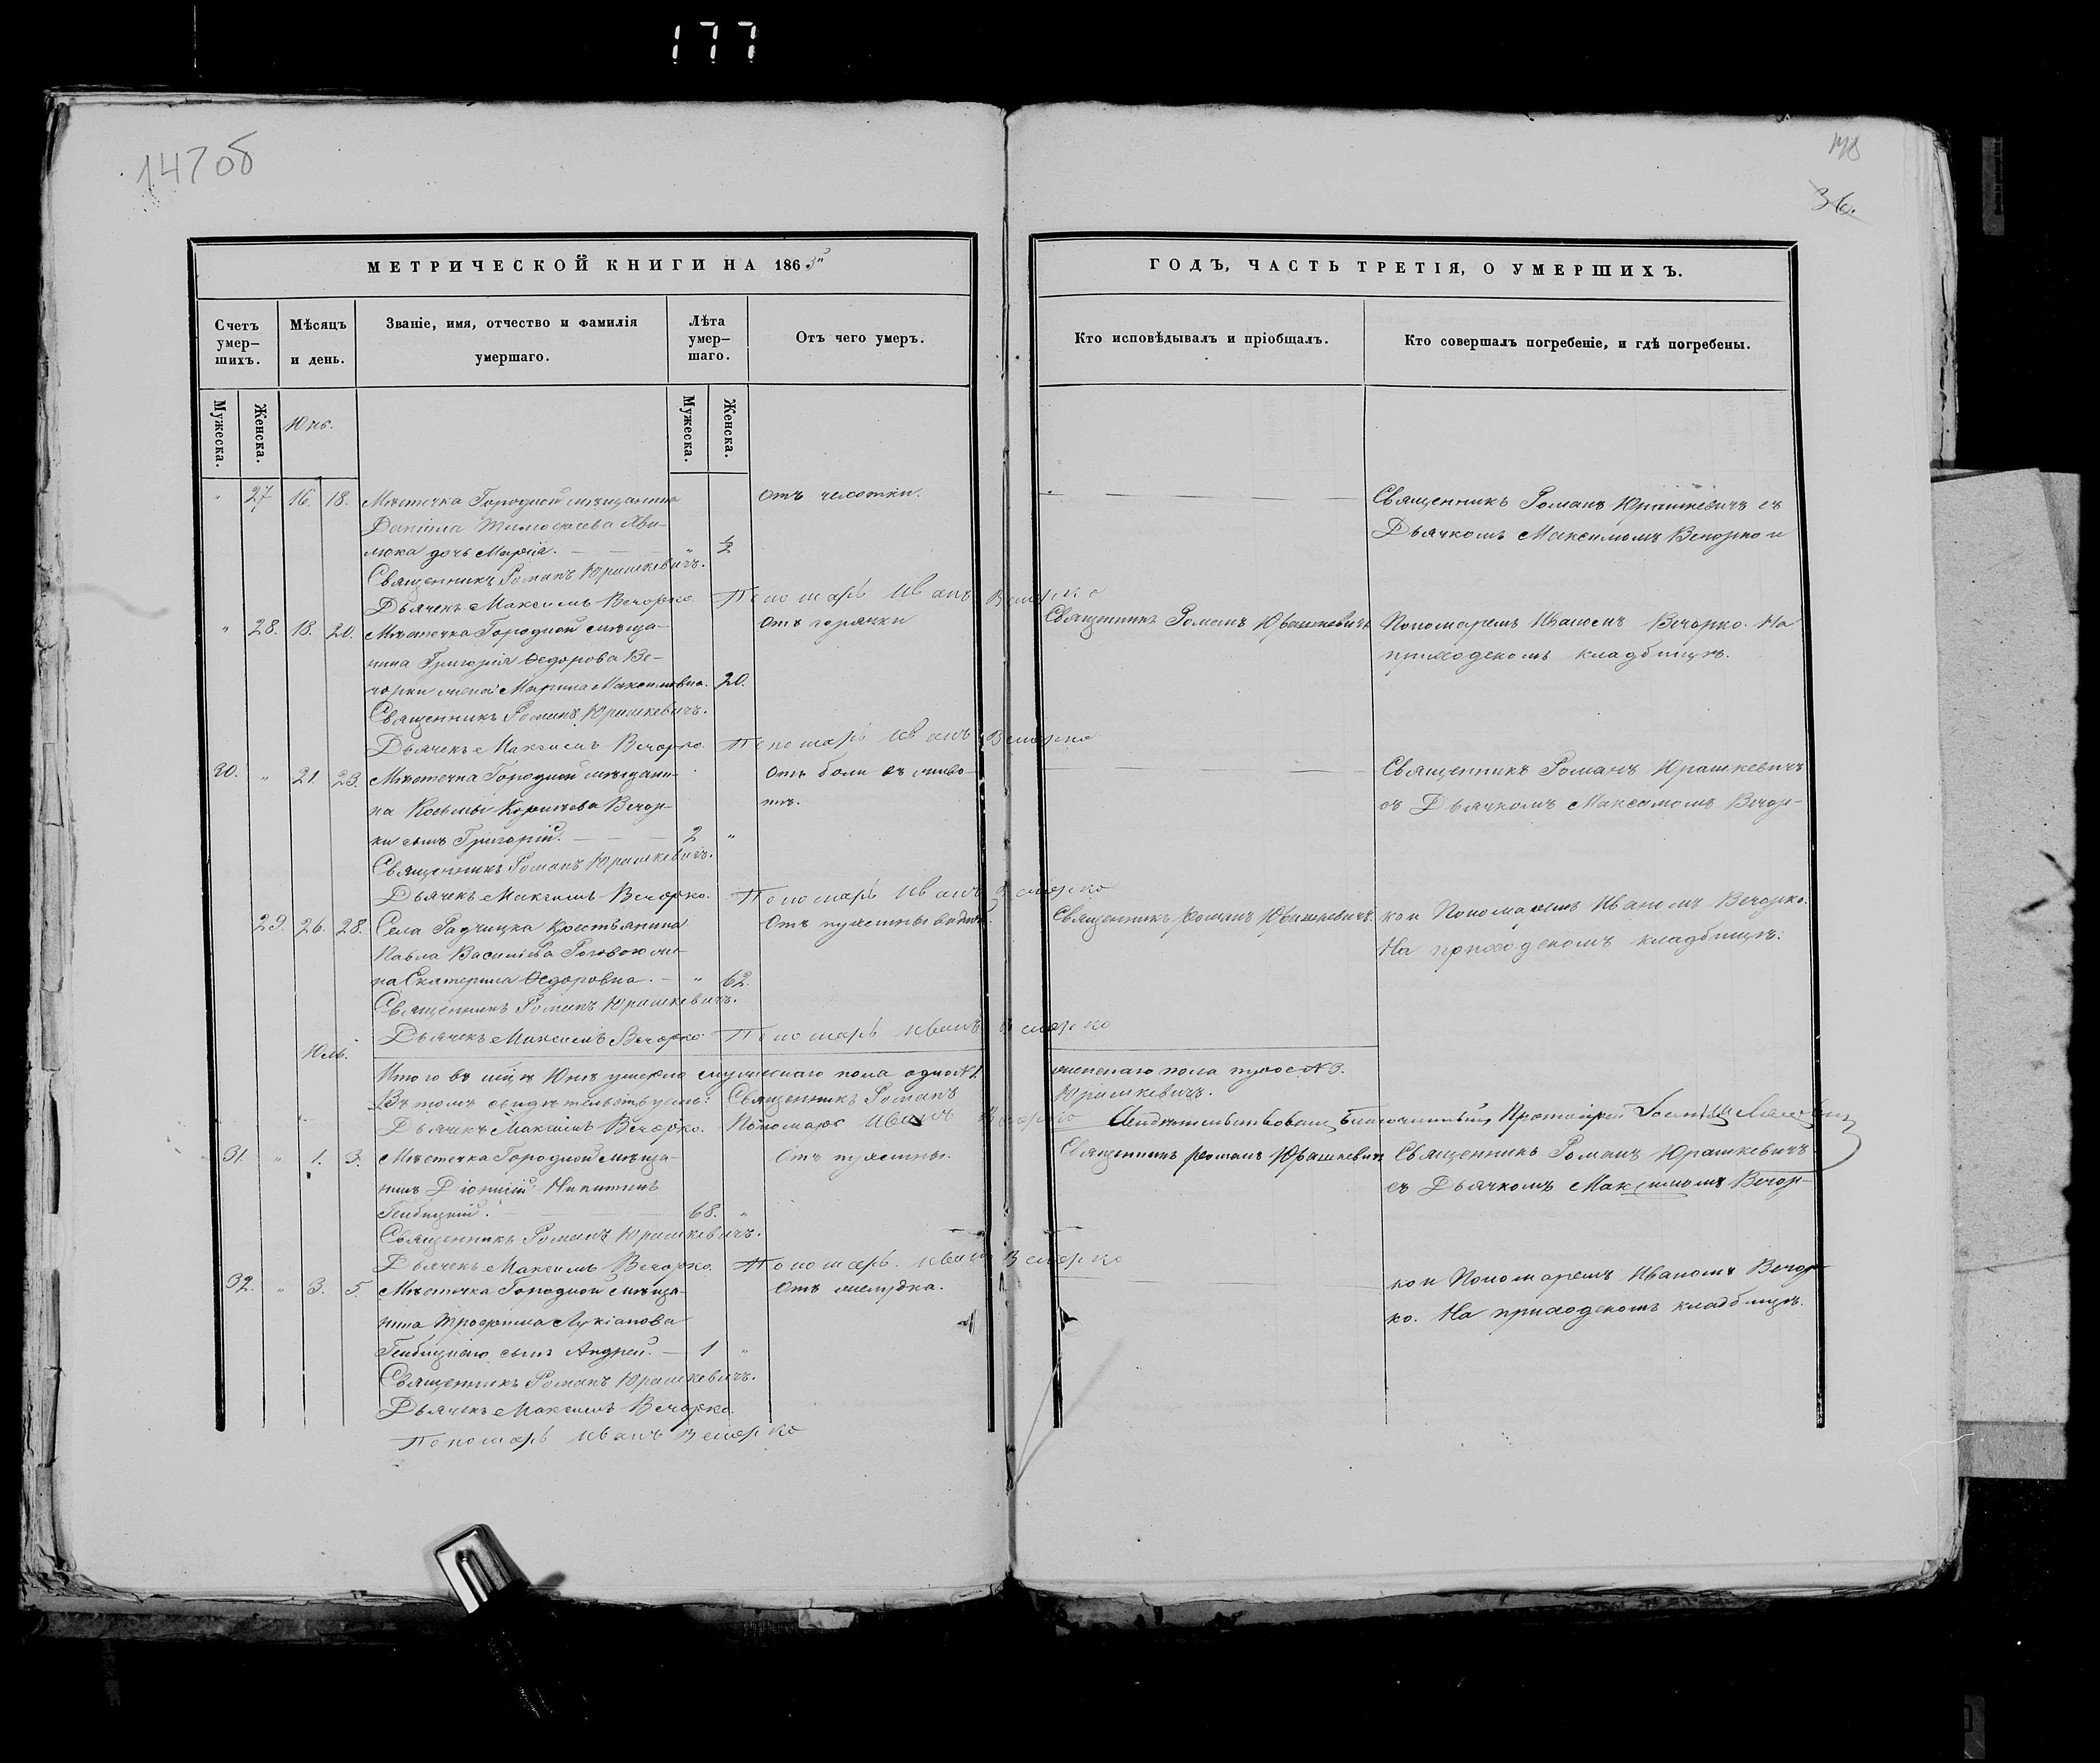 177
147об
148
36.
МЕТРИЧЕСКОЙ КНИГИ НА 1865й
Счетъ умер-шихъ.
Мѣсяцъ и день.
Званіе, имя, отчество и фамилія умершаго.
Лѣта умер-шаго.
Отъ чего умеръ.
Мужеска.
Женска.
Юнь.
Мужеска.
Женска.
" 27 16. 18. Мѣстечка Городной мѣщанина Отъ чесотки.
Даніила Тимофеева
люка дочь Марія. — " ½
Священникъ Романъ Юрашкевичъ.
Дьячекъ Максимъ Вечорко. Пономарь Иванъ Вечорко
" 28. 18. 20. Мѣстечка Городной мѣща- Отъ горячки
нина Григорія Ѳедорова Ве-
чорки жена Марина Максимовна. 20.
Священникъ Романъ Юрашкевичъ.
Дьячекъ Максимъ Вечорко. Пономарь Иванъ Вечорко
30. " 21. 23. Мѣстечка Городной мѣщани- Отъ боли въ живо-
на Косьмы Вечор- тѣ.
ки сынъ Григорій. — 2 "
Священникъ Романъ Юрашкевичъ.
Дьячекъ Максимъ Вечорко. Пономарь Иванъ Вечорко
29. 26. 28. Села Радчицка Крестьянина Отъ
Павла Василіева же-
на Екатерина Ѳедоровна. — " 62.
Священникъ Романъ Юрашкевичъ.
Дьячекъ Максимъ Вечорко Пономарь Иванъ Вечорко
Юль.
Итого въ мцѣ Юнѣ умерло мужескаго пола одно №1.
Въ томъ свидѣтельствуемъ: Священникъ Романъ
Дьячекъ Максимъ Вечорко. Пономарь Иванъ Вечорко
31. " 1. 3. Мѣстечка Городной мѣща- Отъ
нинъ Діонисій Никитинъ
68. "
Священникъ Романъ Юрашкевичъ.
Дьячекъ Максимъ Вечорко. Пономарь Иванъ Вечорко
32. " 3. 5. Мѣстечка Городной мѣща- Отъ
нина Трофима Лукіанова
сынъ Андрей. — 1 "
Священникъ Романъ Юрашкевичъ.
Дьячекъ Максимъ Вечорко.
Пономарь Иванъ Вечорко
ГОДЪ, ЧАСТЬ ТРЕТІЯ, О УМЕРШИХЪ.
Кто исповѣдывалъ и пріобщалъ.
Кто совершалъ погребеніе, и гдѣ погребены.
Священникъ Романъ Юрашкевичъ съ
Дьячкомъ Максимомъ Вечорко и
Священникъ Романъ Юрашкевичъ Пономаремъ Иваномъ Вечорко. На
приходскомъ кладбищѣ.
Священникъ Романъ Юрашкевичъ
съ Дьячкомъ Максимомъ Вечор-
Священникъ Романъ Юрашкевичъ ко и Пономаремъ Иваномъ Вечорко.
На приходскомъ кладбищѣ.
женскаго пола трое №3.
Юрашкевичъ.
Благочинный Протоіерей
Священникъ Романъ Юрашкевичъ Священникъ Романъ Юрашкевичъ
съ Дьячкомъ Максимомъ Вечор-
ко и Пономаремъ Иваномъ Вечор-
ко. На приходскомъ кладбищѣ.